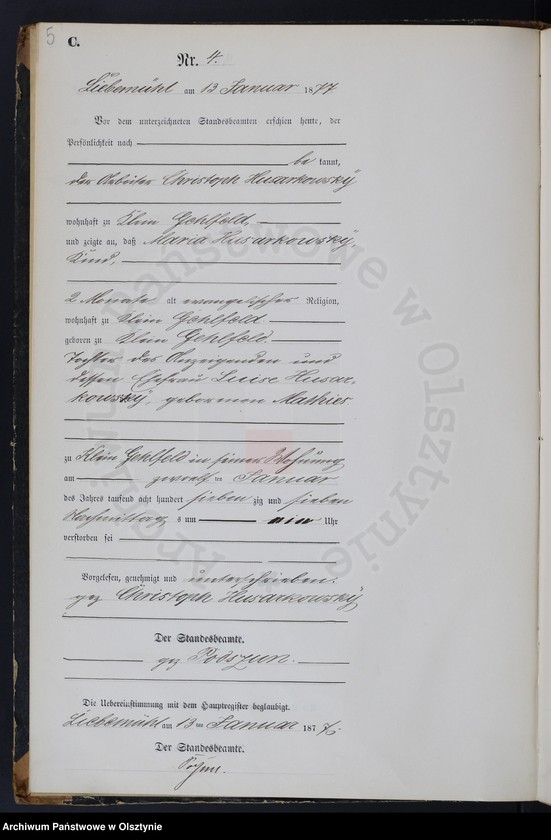 5
C.
Nr. 4.
Liebemühl am 13 Januar 1877
Vor dem unterzeichneten Standesbeamten erschien heute, der
Persönlichkeit nach
be kannt,
der Arbeiter Christoph Husarkowsky
wohnhaft zu Klein Gehlfeld,
und zeigte an, daß Maria Husarkowsky,
Kind,
2 Monate alt evangelischer Religion,
wohnhaft zu Klein Gehlfeld
geboren zu Klein Gehlfeld
Tochter des Anzeigenden und
dessen Ehefrau Luise Husar-
kowsky, geborenen Mathies
zu Klein Gehlfeld in seiner Wohnung
am zwoelf ten Januar
des Jahres tausend acht hundert sieben zig und sieben
Nachmittag s um ein Uhr
verstorben sei
Vorgelesen, genehmigt und unterschrieben:
gez Christoph Husarkowsky
Der Standesbeamte.
gez Podszun.
Die Uebereinstimmung mit dem Hauptregister beglaubigt.
Liebemühl am 13 ten Januar 1877.
Der Standesbeamte.
Archiwum Państwowe w Olsztynie
Archiwum Państwowe w Olsztynie